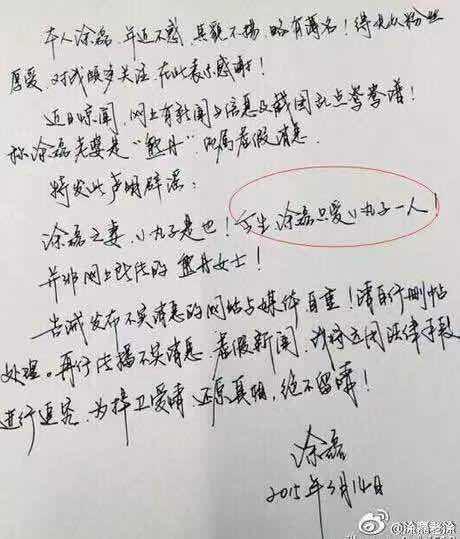 本人涂磊,年近不惑,其貌不扬,略有薄名!得大众粉丝
厚爱,对我颇多关注,在此表示感谢!
近日惊闻,网上有新闻与信息及截图乱点鸳鸯谱!
称涂磊老婆是“熊丹”,此属虚假消息.
特发此声明辟谣:
涂磊之妻,小丸子是也!今生,涂磊只爱小丸子一人!
并非网上所传的熊丹女士!
告诫发布不实消息的网站与媒体自重!请自行删帖
处理。再行传播不实消息,虚假新闻,我将运用法律手段
进行追究,为捍卫爱情,还原真相,绝不留情!
涂磊
2015年3月14日